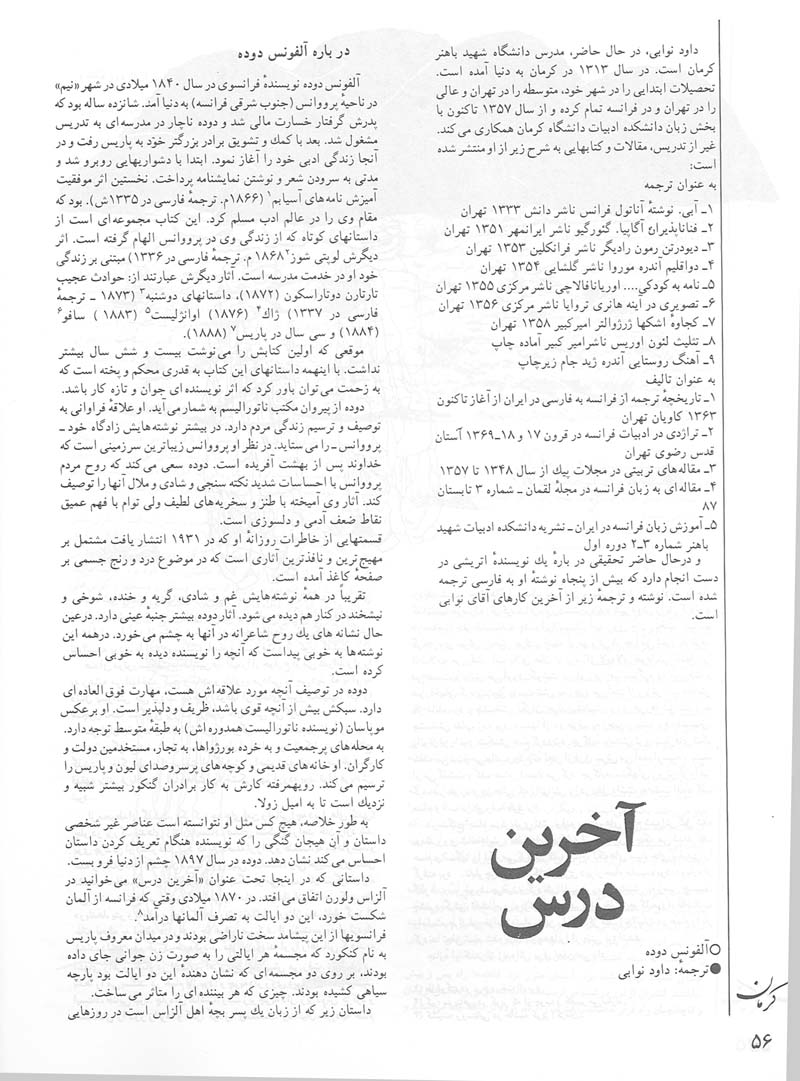 داود نوابی، در حال حاضر، مدرس دانشگاه شهید باهنر
کرمان است. در سال ۱۳۱۳ در کرمان به دنیا آمده است.
تحصیلات ابتدایی را در شهر خود، متوسطه را در تهران و عالی
را در تهران و در فرانسه تمام کرده و از سال ۱۳۵۷ تاکنون با
بخش زبان دانشکده ادبیات دانشگاه کرمان همکاری می‌کند.
غیر از تدریس، مقالات و کتابهایی به شرح زیر از او منتشر شده
است:
به عنوان ترجمه
۱ـ آبی. نوشتهٔ آناتول فرانس ناشر دانش ۱۳۳۳ تهران
۲ـ فناناپذیران آگاپیا. گئورگیو ناشر ایرانمهر ۱۳۵۱ تهران
۳ـ دیودرتن رمون رادیگر ناشر فرانکلین ۱۳۵۳ تهران
۴ـ دواقلیم آندره موروا ناشر گلشایی ۱۳۵۴ تهران
۵ـ نامه به کودکی.... اوریانافالاچی ناشر مرکزی ۱۳۵۵ تهران
۶ـ تصویری در آینه هانری تروایا ناشر مرکزی ۱۳۵۶ تهران
۷ـ کجاوهٔ اشکها ژرژوالتر امیرکبیر ۱۳۵۸ تهران
۸ـ تثلیث لئون اوریس ناشرامیر کبیر آماده چاپ
۹ـ آهنگ روستایی آندره ژید جام زیرچاپ
به عنوان تالیف
۱ـ تاریخچهٔ ترجمه از فرانسه به فارسی در ایران از آغاز تاکنون
۱۳۶۳ کاویان تهران
۲ـ تراژدی در ادبیات فرانسه در قرون ۱۷ و ۱۸ـ۱۳۶۹ آستان
قدس رضوی تهران
۳ـ مقاله‌های تربیتی در مجلات پیك از سال ۱۳۴۸ تا ۱۳۵۷
۴ـ مقاله‌ای به زبان فرانسه در مجلهٔ لقمان ـ شماره ۳ تابستان
۸۷
۵ـ آموزش زبان فرانسه در ایران ـ نشریه دانشکده ادبیات شهید
باهنر شماره ۳ـ۲ دوره اول
و درحال حاضر تحقیقی در بارهٔ یك نویسندهٔ اتریشی در
دست انجام دارد که بیش از پنجاه نوشتهٔ او به فارسی ترجمه
شده است. نوشته و ترجمهٔ زیر از آخرین کارهای آقای نوابی
است.
آخرین
درس
○آلفونس دوده
●ترجمهٔ: داود نوابی
در باره آلفونس دوده
آلفونس دوده نویسندهٔ فرانسوی در سال ۱۸۴۰ میلادی در شهر «نیم»
در ناحیهٔ پرووانس (جنوب شرقی فرانسه) به دنیا آمد. شانزده ساله بود که
پدرش گرفتار خسارت مالی شد و دوده ناچار در مدرسه‌ای به تدریس
مشغول شد. بعد با كمك و تشویق برادر بزرگتر خود به پاریس رفت و در
آنجا زندگی ادبی خود را آغاز نمود. ابتدا با دشواریهایی روبرو شد و
مدتی به سرودن شعر و نوشتن نمایشنامه پرداخت. نخستین اثر موفقیت
آمیزش نامه‌های آسیابم۱ (۱۸۶۶م. ترجمهٔ فارسی در ۱۳۳۵ش). بود که
مقام وی را در عالم ادب مسلم کرد. این کتاب مجموعه‌ای است از
داستانهای کوتاه که از زندگی وی در پرووانس الهام گرفته است. اثر
دیگرش لوپتی شوز۲ ۱۸۶۸ م. ترجمهٔ فارسی در ۱۳۳۶) مبتنی بر زندگی
خود او در خدمت مدرسه است. آثار دیگرش عبارتند از: حوادث عجیب
تارتارن دوتاراسکون (۱۸۷۲)، داستانهای دوشنبه۳ (۱۸۷۳ ـ ترجمهٔ
فارسی در ۱۳۳۷) ژاك۴ (۱۸۷۶) اوانژلیست۵ (۱۸۸۳) سافو۶
(۱۸۸۴) و سی سال در پاریس۷ (۱۸۸۸).
موقعی که اولین کتابش را می‌نوشت بیست و شش سال بیشتر
نداشت. با اینهمه داستانهای این کتاب به قدری محکم و پخته است که
به زحمت می‌توان باور کرد که اثر نویسنده‌ای جوان و تازه کار باشد.
دوده از پیروان مکتب ناتورالیسم به شمار می‌آید. او علاقهٔ فراوانی به
توصیف و ترسیم زندگی مردم دارد. در بیشتر نوشته‌هایش زادگاه خود ـ
پرووانس ـ را می‌ستاید. در نظر او پرووانس زیباترین سرزمینی است که
خداوند پس از بهشت آفریده است. دوده سعی می‌کند که روح مردم
پرووانس با احساسات شدید نکته سنجی و شادی و ملال آنها را توصیف
کند. آثار وی آمیخته با طنز و سخریه‌های لطیف ولی توام با فهم عمیق
نقاط ضعف آدمی و دلسوزی است.
قسمتهایی از خاطرات روزانهٔ او که در ۱۹۳۱ انتشار یافت مشتمل بر
مهیج‌ترین و نافذترین آثاری است که در موضوع درد و رنج جسمی بر
صفحهٔ کاغذ آمده است.
تقریباً در همهٔ نوشته‌هایش غم و شادی، گریه و خنده، شوخی و
نیشخند در کنار هم دیده می شود. آثار دوده بیشتر جنبهٔ عینی دارد. درعین
حال نشانه های یك روح شاعرانه در آنها به چشم می‌خورد. درهمه این
نوشته‌ها به خوبی پیداست که آنچه را نویسنده دیده به خوبی احساس
کرده است.
دوده در توصیف آنچه مورد علاقه‌اش هست، مهارت فوق العاده‌ای
دارد. سبکش بیش از آنچه قوی باشد، ظریف و دلپذیر است. او برعکس
موپاسان (نویسنده ناتورالیست همدوره اش) به طبقهٔ متوسط توجه دارد.
به محله‌های پرجمعیت و به خرده بورژواها، به تجار، مستخدمین دولت و
کارگران. او خانه‌های قدیمی و کوچه‌های پرسروصدای لیون و پاریس را
ترسیم می‌کند. رویهمرفته کارش به کار برادران گنکور بیشتر شبیه و
نزدیك است تا به امیل زولا.
به طور خلاصه، هیچ کس مثل او نتوانسته است عناصر غیر شخصی
داستان و آن هیجان گنگی را که نویسنده هنگام تعریف کردن داستان
احساس می‌کند نشان دهد. دوده در سال ۱۸۹۷ چشم از دنیا فرو بست.
داستانی که در اینجا تحت عنوان «آخرین درس» می‌خوانید در
آلزاس ولورن اتفاق می‌افتد. در ۱۸۷۰ میلادی وقتی که فرانسه از آلمان
شکست خورد، این دو ایالت به تصرف آلمانها درامد۸.
فرانسویها از این پیشامد سخت ناراضی بودند و در میدان معروف پاریس
به نام کنکورد که مجسمهٔ هر ایالتی را به صورت زن جوانی جای داده
بودند، بر روی دو مجسمه‌ای که نشان دهندهٔ این دو ایالت بود پارچه
سیاهی کشیده بودند. چیزی که هر بیننده ای را متاثر می‌ساخت.
داستان زیر که از زبان یك پسر بچهٔ اهل آلزاس است در روزهایی
کرمان
۵۶